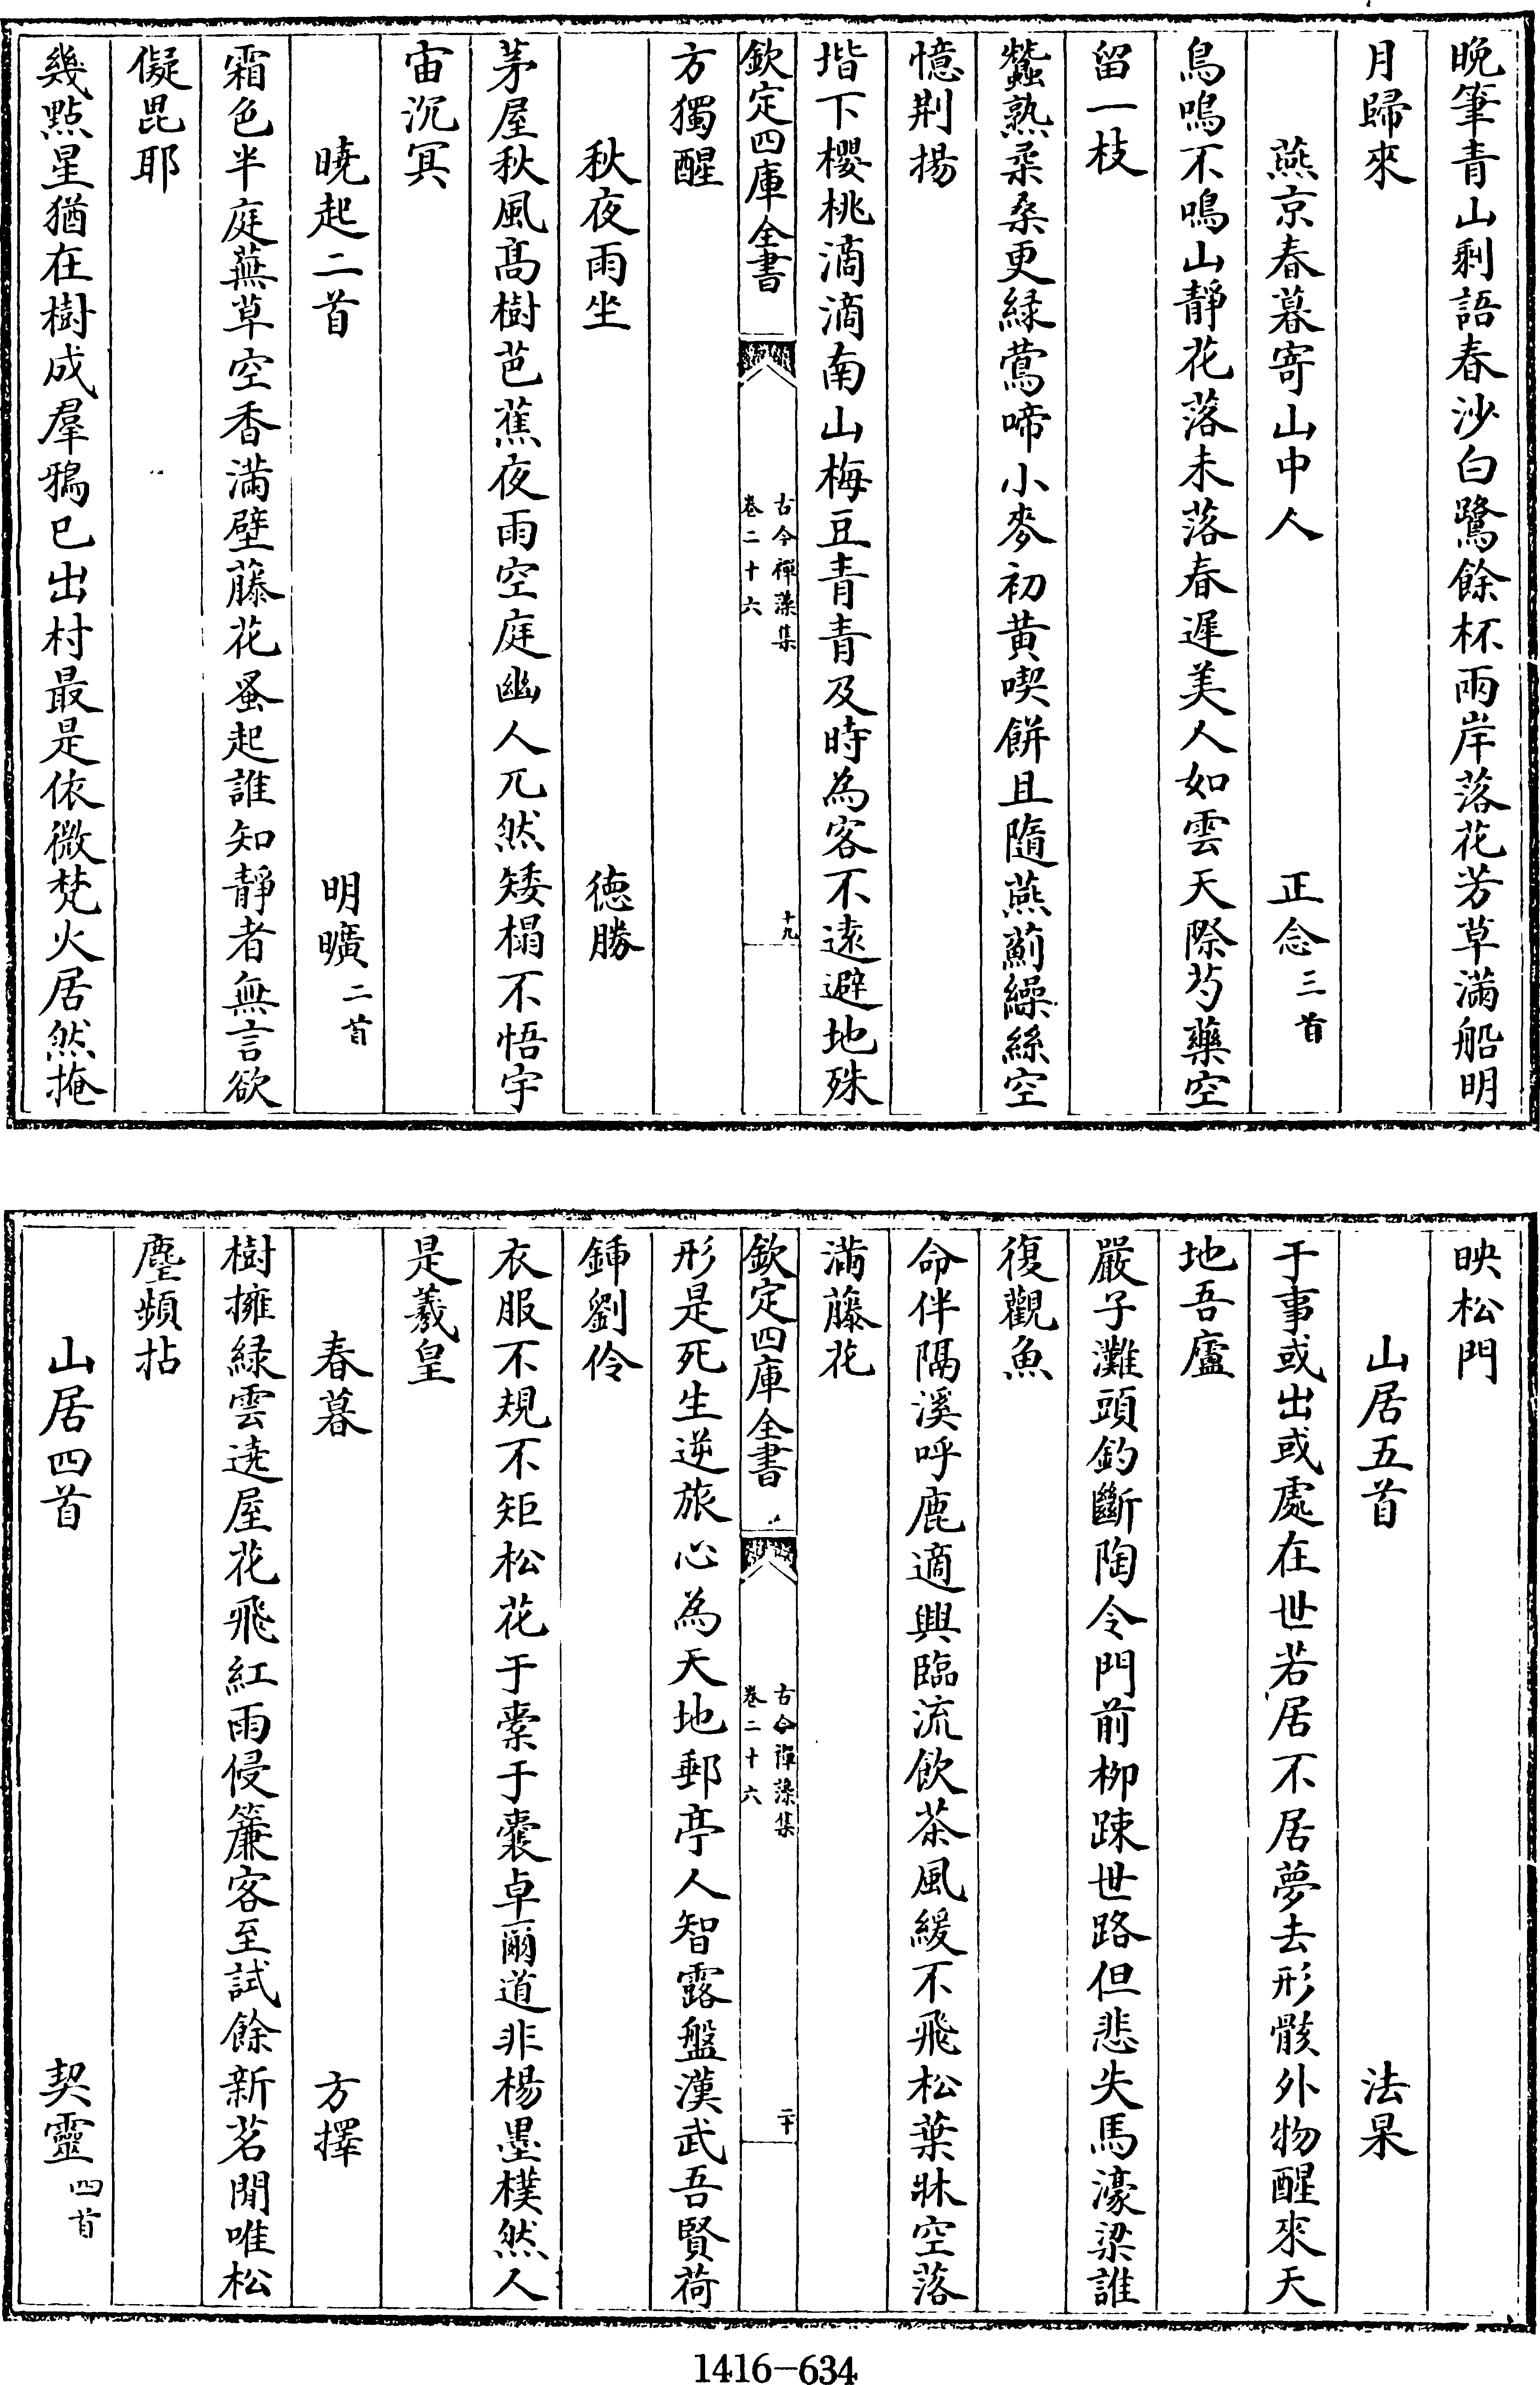 晚筆青山剩語春沙白鷺餘杯兩岸落花芳草滿船明
月歸來
燕京春暮寄山中人 正念三首
鳥鳴不鳴山靜花落未落春遲美人如雲天際芍藥空
留一枝
蠶熟柔桑更緑鶯啼小麥初黄喫餅且隨燕薊繰絲空
憶荆揚
堦下櫻桃滴滴南山梅豆青青及時為客不逺避地殊
欽定四庫全書 古今禪藻集 卷二十六 十九
方獨醒
秋夜雨坐 徳勝
茅屋秋風髙樹芭蕉夜雨空庭幽人兀然矮榻不悟宇
宙沉冥
曉起二首 明曠二首
霜色半庭蕪草空香滿壁藤花蚤起誰知靜者無言欲
儗毘耶
幾點星猶在樹成羣鴉已出村最是依微梵火居然掩
映松門
山居五首 法杲
于事或出或處在世若居不居夢去形骸外物醒來天
地吾廬
嚴子灘頭釣斷陶令門前栁踈世路但悲失馬濠梁誰
復觀魚
命伴隔溪呼鹿適興臨流飲茶風緩不飛松葉牀空落
滿藤花
欽定四庫全書 古今禪藻集 卷二十六 二十
形是死生逆旅心為天地郵亭人智露盤漢武吾賢荷
鍤劉伶
衣服不規不矩松花于橐于囊卓爾道非楊墨樸然人
是羲皇
春暮 方擇
樹擁緑雲遶屋花飛紅雨侵簾客至試餘新茗閒唯松
塵頻拈
山居四首 契靈四首
1416-634